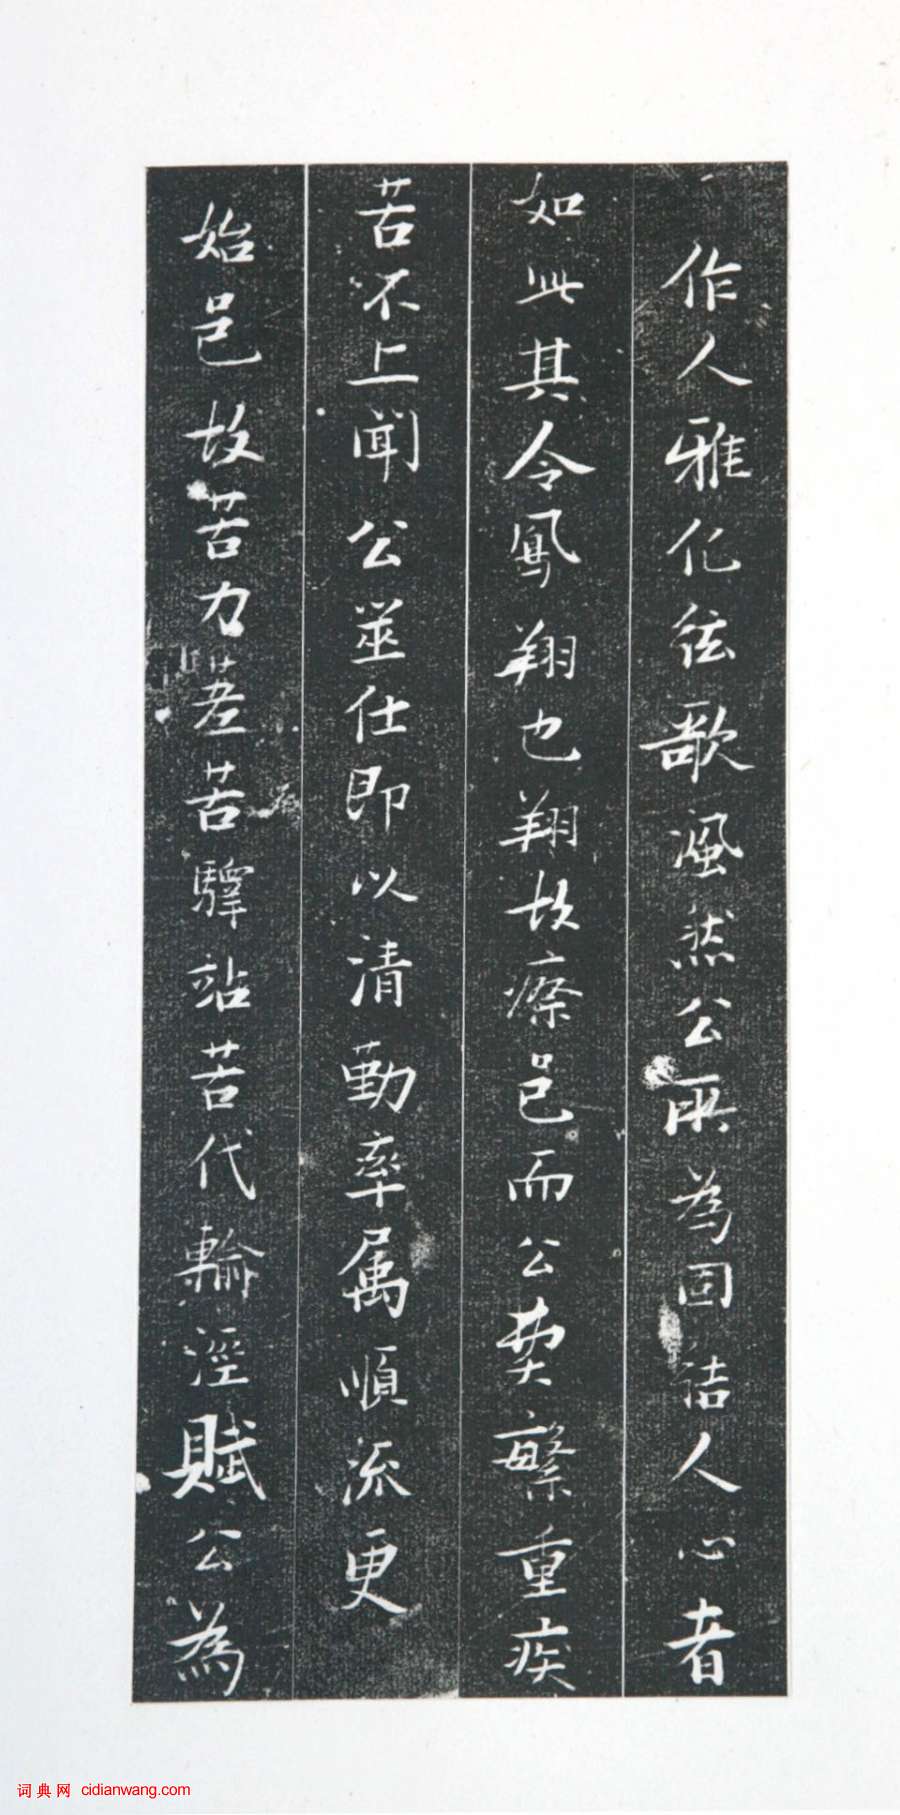 作人雅化弦歌風然公所為固結人心者
如此其令鳳翔也翔故瘵邑而公費繁重疾
苦不上聞公筮仕即以清勤率属順流更
始邑故苦力差苦驛站苦代輸涇賦公為
词典网 cidianwang.com